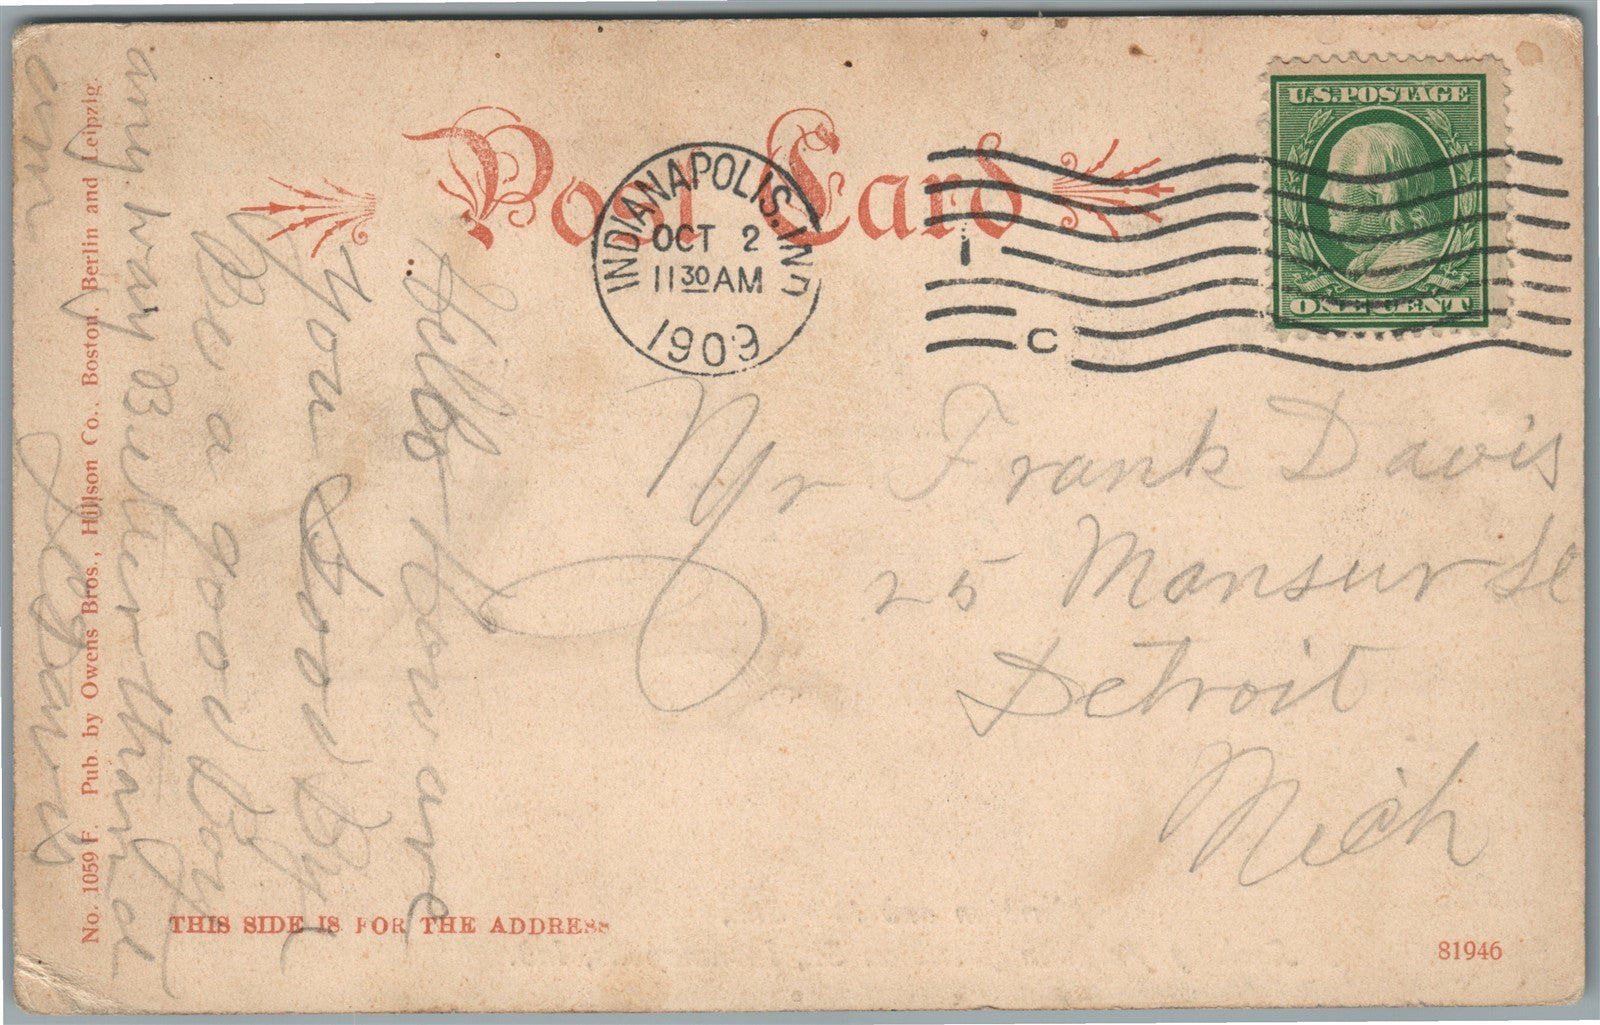 Post Card
U.S.POSTAGE
ONE CENT
INDIANAPOLIS, IND
OCT 2
11 30 AM
1909
1
C
Mr Frank Davis
25 Mansur St
Detroit
Mich
Hello How are
you Good By
Be a good Boy
any way Better than I
am
Davis
No. 1059 F. Pub. by Owens Bros., Hillson Co., Boston, Berlin and Leipzig.
THIS SIDE IS FOR THE ADDRESS
81946